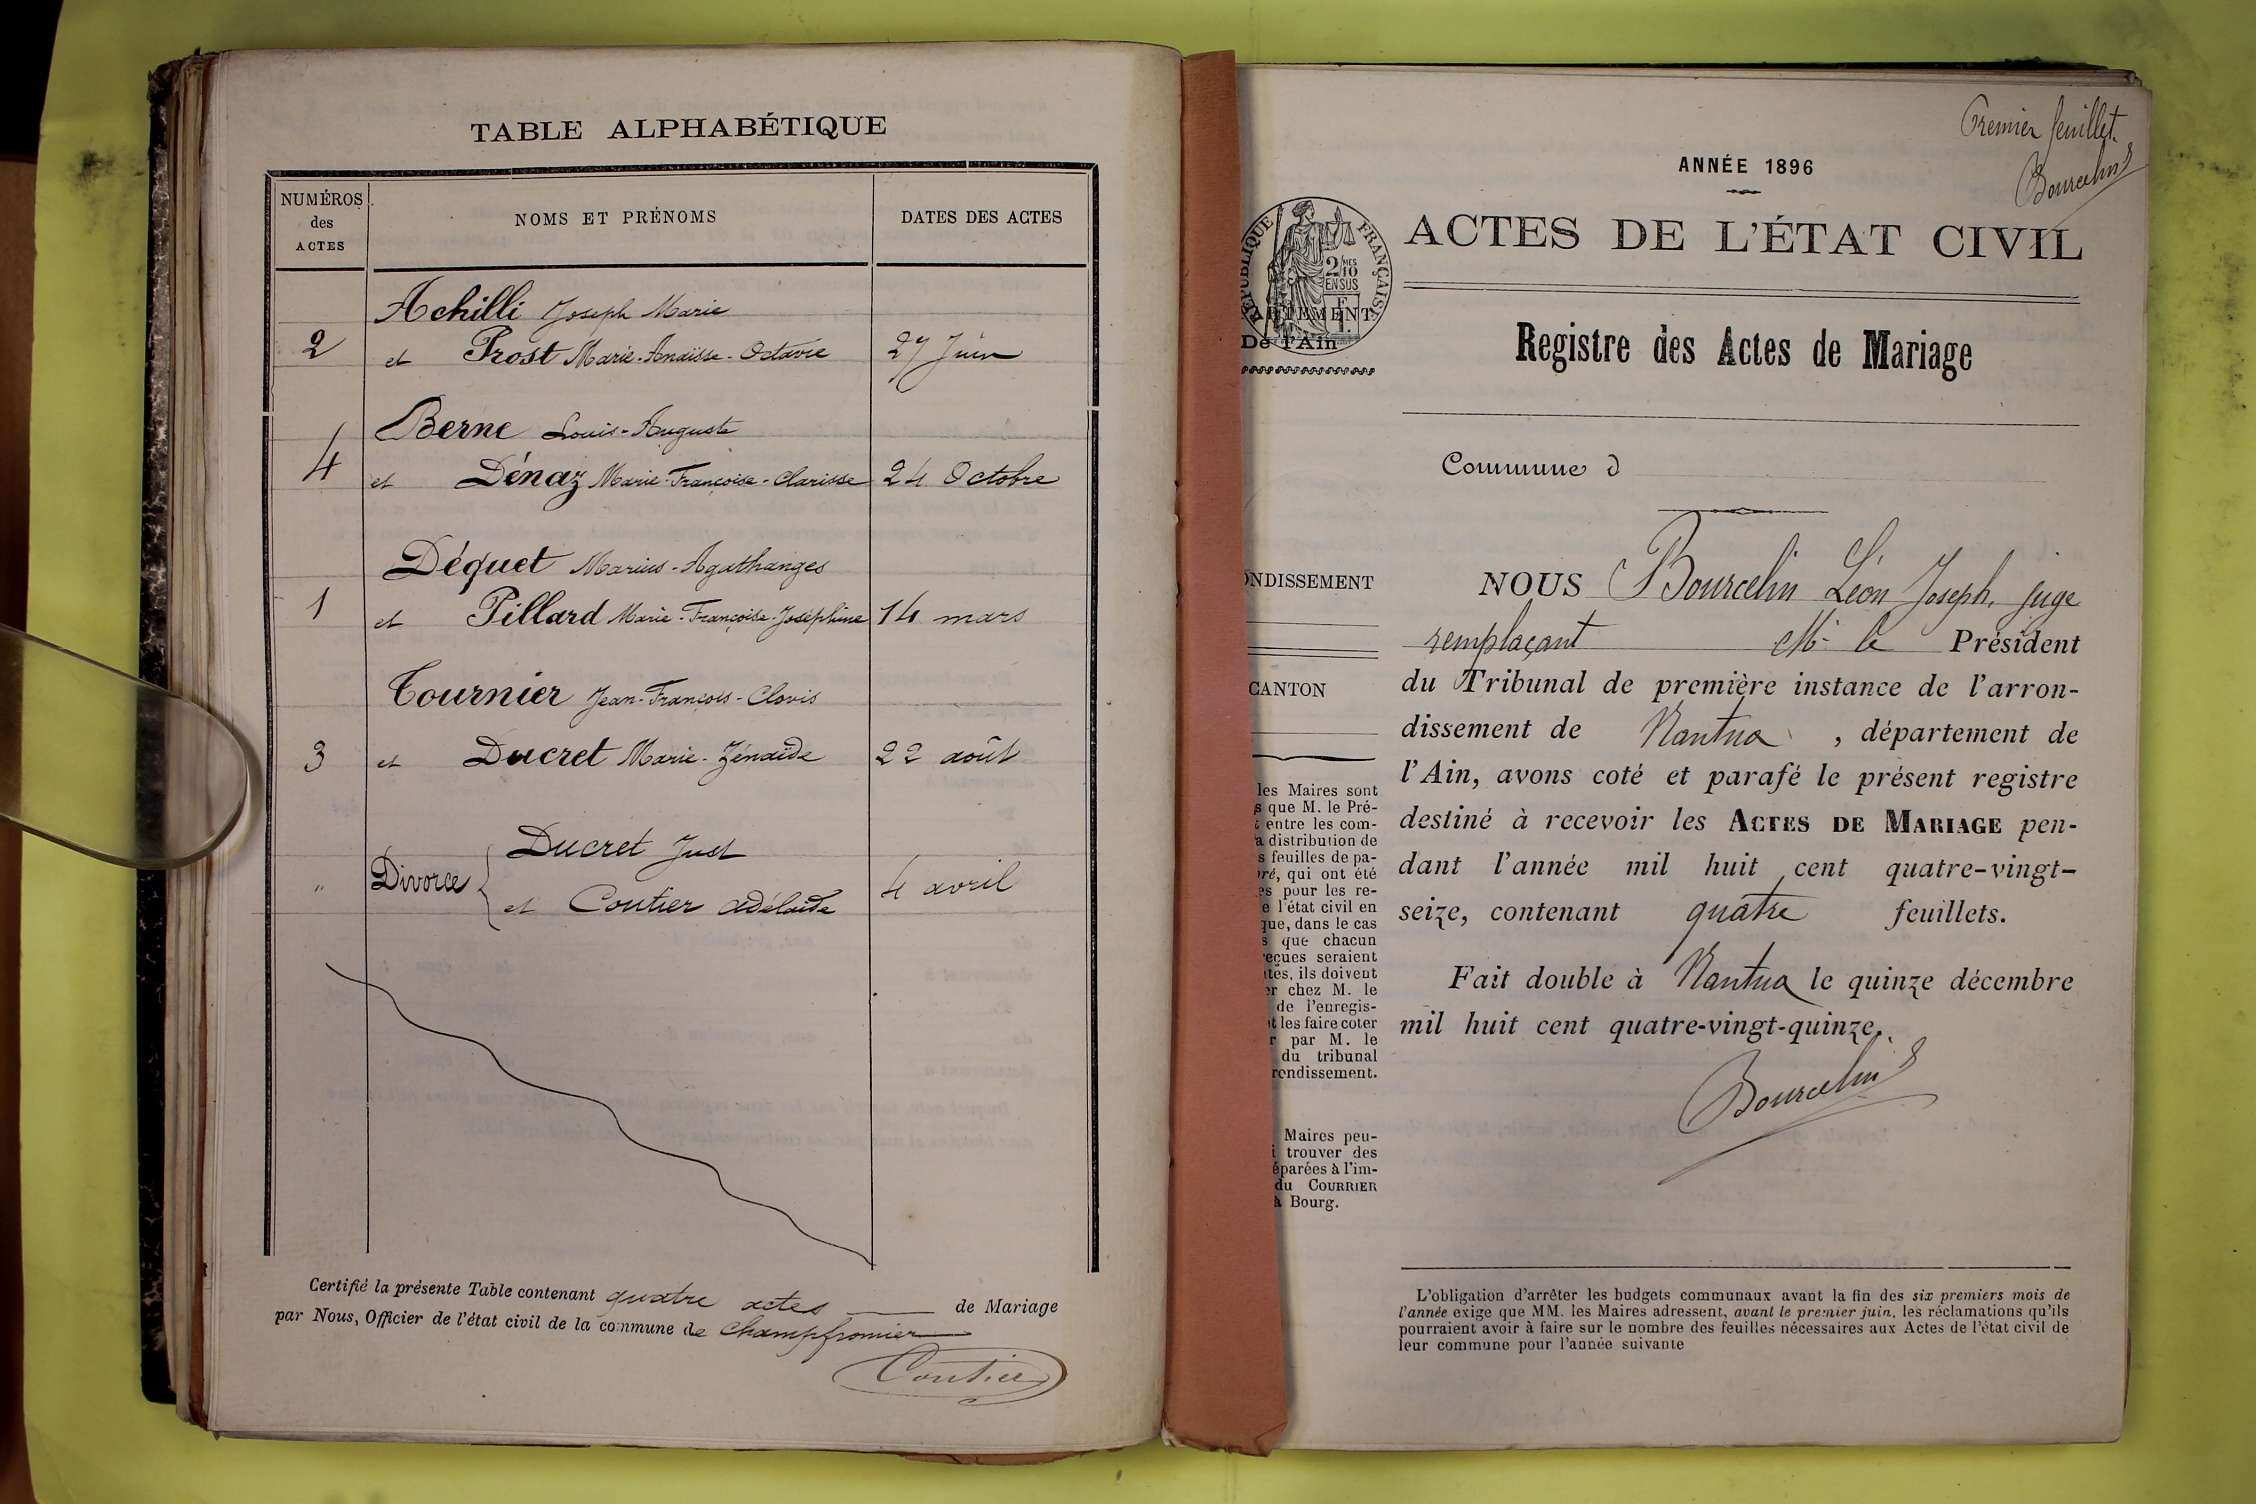 TABLE ALPHABÉTIQUE
NUMÉROS
des
ACTES
NOMS ET PRÉNOMS
DATES DES ACTES
Achilli Joseph Marie
2 et Prost Marie-Anaïsse-Octavie 27 Juin
Berne Louis-Auguste
4 et Dénaz Marie-Françoise-Clarisse 24 Octobre
Déquet Marius-Agathanges
1 et Pillard Marie-Françoise-Joséphine 14 mars
Tournier Jean-François-Clovis
3 et Ducret Marie-Zénaïde 22 août
Ducret Just
" Divorce 4 avril
et Coutier adélaïde
Certifié la présente Table contenant quatre actes de Mariage
par Nous, Officier de l'état civil de la commune de Champfromier
Coutier
Premier feuillet.
Bourcelin
ANNÉE 1896
RÉPUBLIQUE FRANÇAISE
2 MES
10
EN SUS
De l'Ain
ACTES DE L'ÉTAT CIVIL
Registre des Actes de Mariage
Commune d
ONDISSEMENT
CANTON
les Maires sont
s que M. le Pré-
t entre les com-
a distribution de
s feuilles de pa-
ré, qui ont été
es pour les re-
e l'état civil en
que, dans le cas
s que chacun
eçues seraient
tes, ils doivent
er chez M. le
de l'enregis-
t les faire coter
r par M. le
du tribunal
rondissement.
Maires peu-
i trouver des
éparées à l'im-
du COURRIER
à Bourg.
NOUS Bourcelin Léon Joseph, juge
remplaçant Mr le Président
du Tribunal de première instance de l'arron-
dissement de Nantua, département de
l'Ain, avons coté et parafé le présent registre
destiné à recevoir les ACTES DE MARIAGE pen-
dant l'année mil huit cent quatre-vingt-
seize, contenant quatre feuillets.
Fait double à Nantua le quinze décembre
mil huit cent quatre-vingt-quinze.
Bourcelin
L'obligation d'arrêter les budgets communaux avant la fin des six premiers mois de
l'année exige que MM. les Maires adressent, avant le premier juin, les réclamations qu'ils
pourraient avoir à faire sur le nombre des feuilles nécessaires aux Actes de l'état civil de
leur commune pour l'année suivante